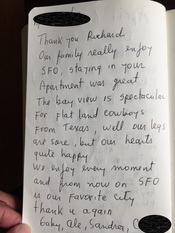 Thank you Richard
Our family really enjoy
SFO, staying in your
Apartment was great
The bay view is spectacular
For flat land cowboys
From Texas, well our legs
are sore, but our hearts
quite happy
We enjoy every moment
and from now on SFO
is our favorite city
thank u again
Gaby, Ale, Sandra,